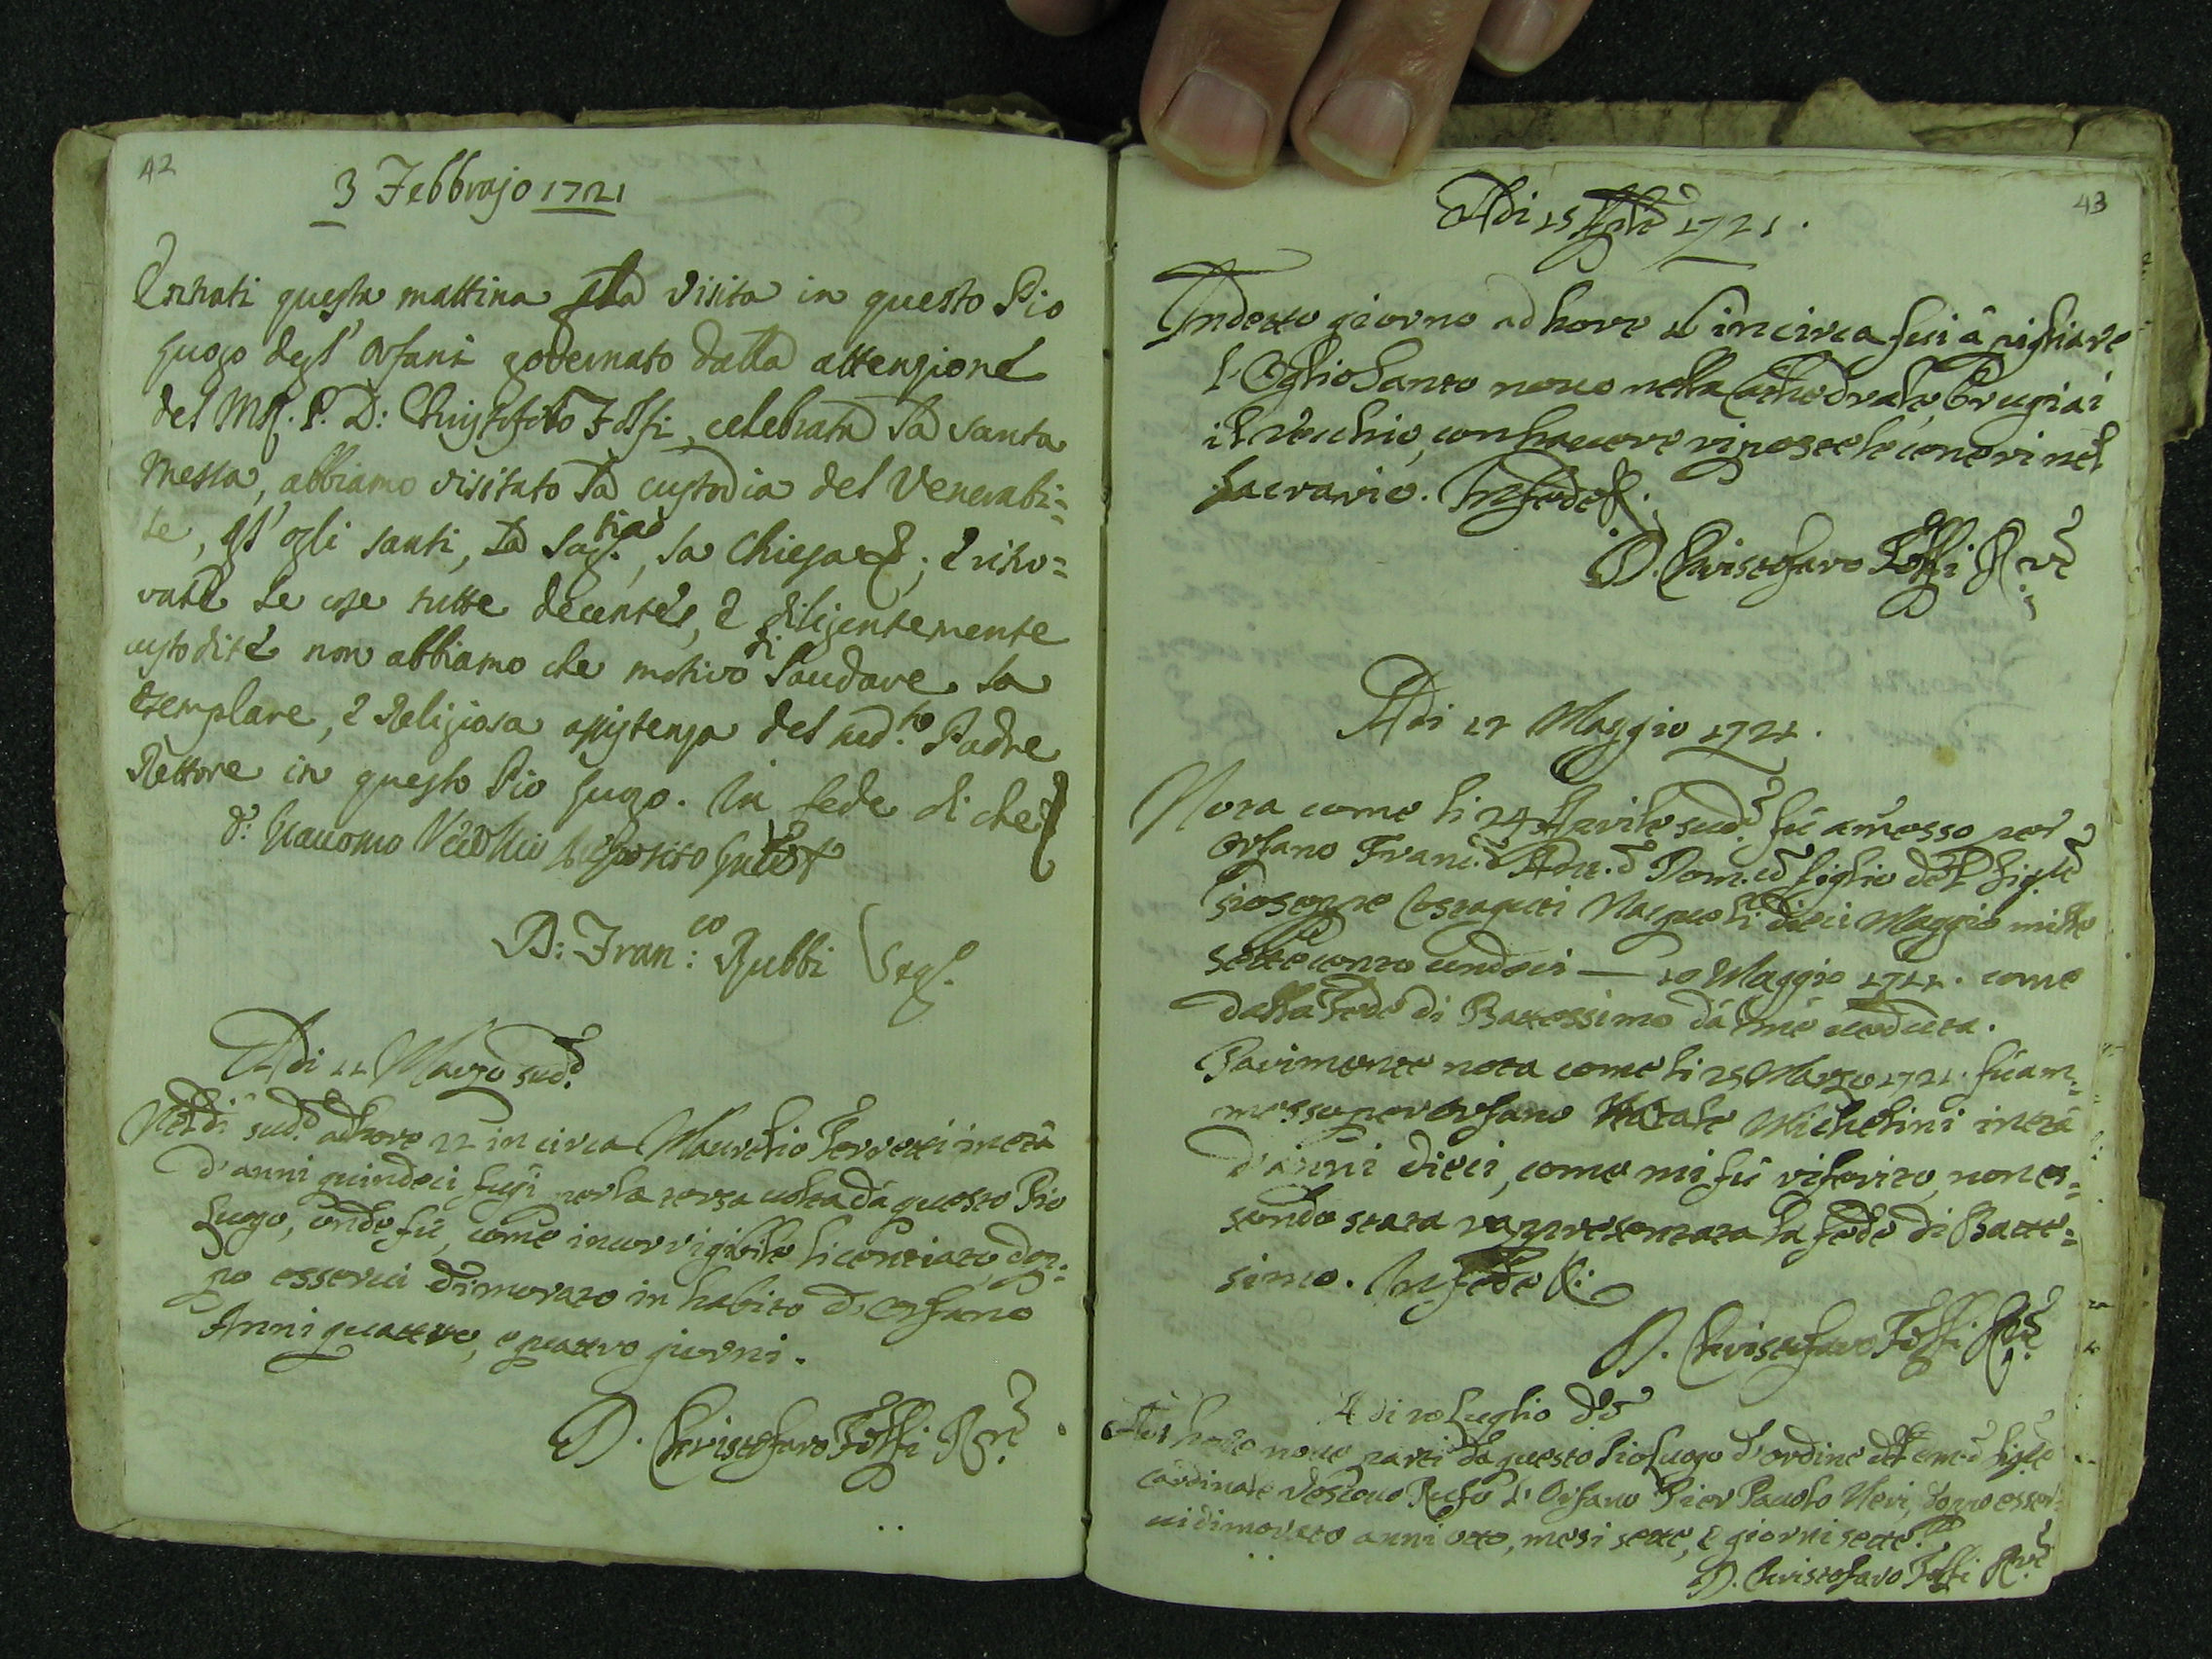 42
3 Febbrajo 1721
Entrati questa mattina visita in questo Pio
Luogo degl' Orfani governato dalla attenzione
del M. P. D: Christoforo Folfi, celebrata la santa
Messa, abbiamo visitato la custodia del Venerabi=
le, gl' ogli santi, la Sag.stia, la Chiesa &; e ritro=
vate le cose tutte decente, e diligentemente
custodite non abbiamo che motivo di laudare la
esemplare, e Religiosa assistenza del sud.to Padre
Rettore in questo Pio Luogo. In fede di che
D. Giacomo Preposito
D: Fran:co Rubbi Seg.
Adi 11 Marzo sud.o
Nel dì sud.o ad hore 22 in circa Maurelio Ferretti in età
d'anni quindeci fugì per la terza uolta dà questo Pio
Luogo, onde fù, come incorrigibile licentiato dop=
po esserui dimorato in habito d'Orfano
Anni quattro, e quattro giorni.
D. Christofaro Folfi R.re
43
Adi 15 Aprile 1721.
In detto giorno ad hore in circa fui à pigliare
l'Oglio Santo nouo nella Cathedrale, brugiai
il Vecchio, con hauere riposte le ceneri nel
Sacrario. In fede &.
D. Christofaro Folfi R.re
Adi 17 Maggio 1721.
Nota come li 24 Aprile sud.o fù amesso per
Orfano Franc.o Ant.o Dom.co figlio del Sig.re
Gioseppe Nacque li dieci Maggio mille
sette cento undeci — 10 Maggio 1711. come
dalla Fede di Battessimo dà mè ueduta.
Parimente nota come li 25 Marzo 1721. fù am=
messo per orfano Natale Michelini in età
d'anni dieci, come mi fù riferito, non es=
sendo stata rappresentata la fede di Batte=
simo. In fede &.
D. Christofaro Folfi R.re
A di 10 Luglio d.o
Ad hore noue partì da questo Pio Luogo d'ordine del em.o Sig.re
Cardinale Vescouo Rufo l'Orfano Pier Pauolo Neri, doppo esser=
ui dimorato anni otto, mesi sette, e giorni sette.
D. Christofaro Folfi R.re